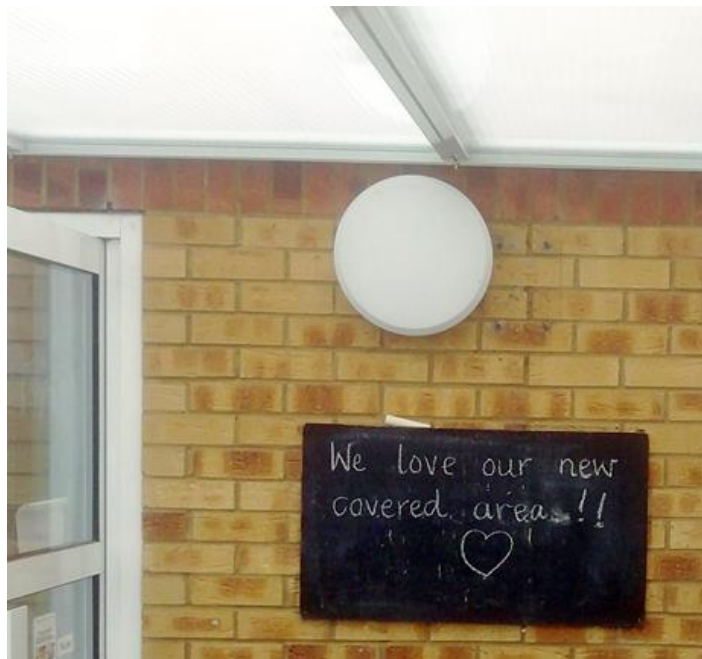 We love our new
covered area!!